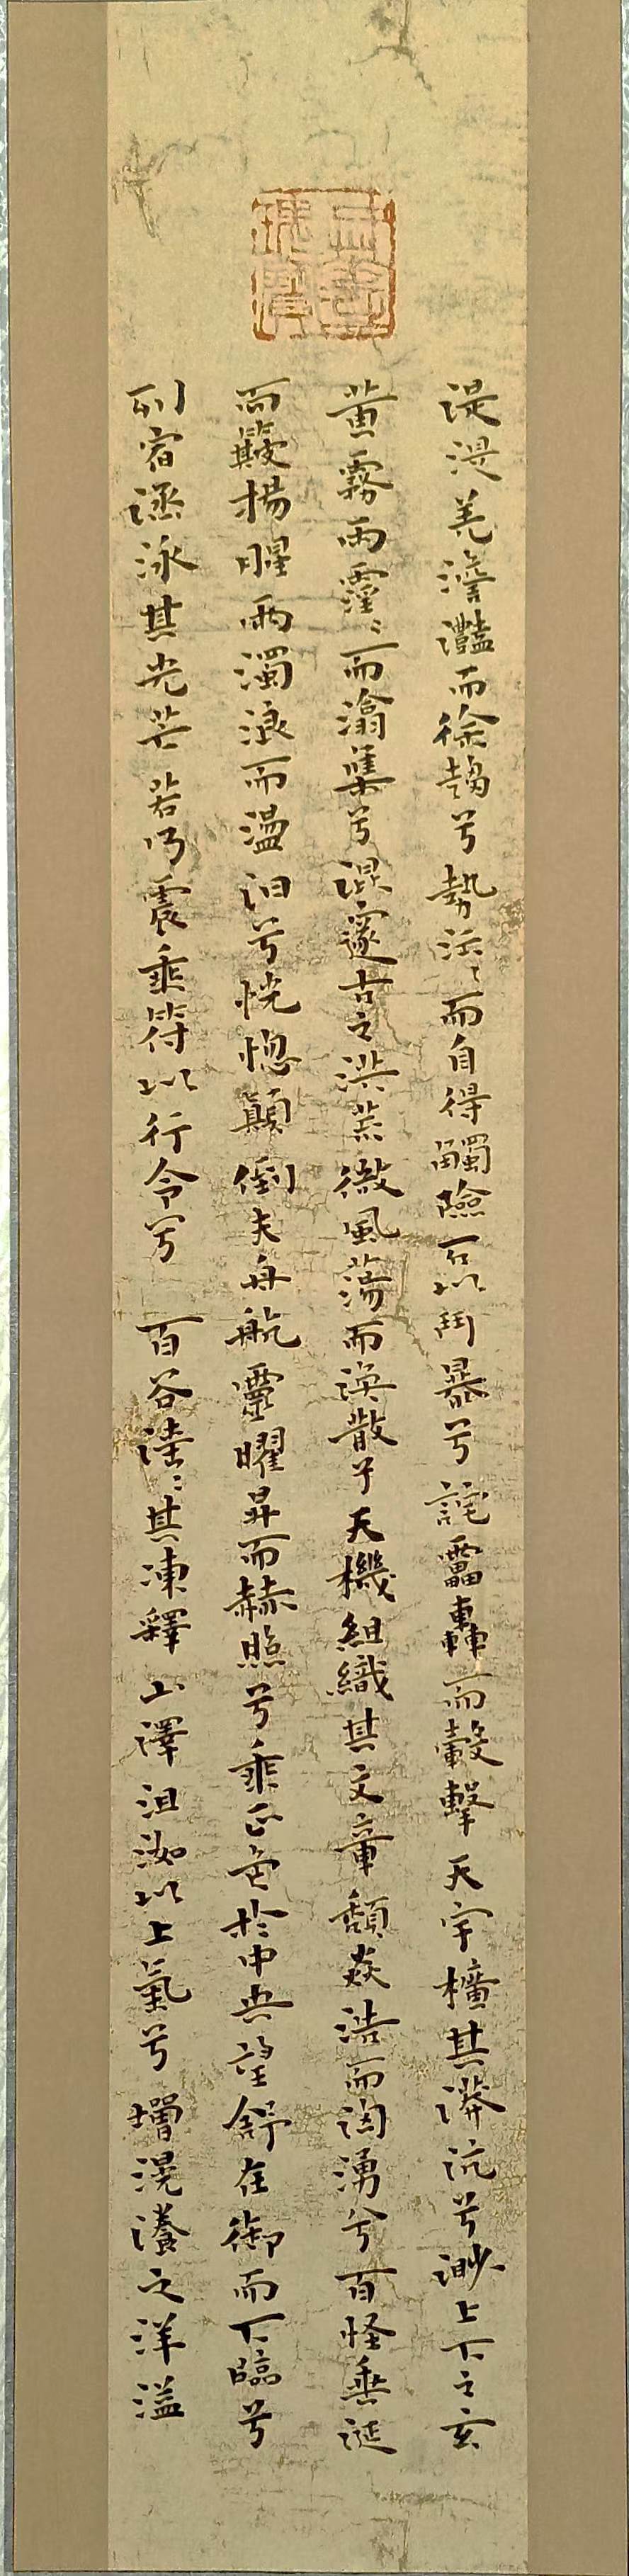 湜湜羌澹灩而徐趨兮勢泫〻而自得觸險石以鬥暴兮詫靁轟而轂擊天宇櫎其漭沆兮渺上下之玄
黄霧雨霪〻而滃集兮混邃古之洪荒微風蕩而渙散兮天機組織其文章頹焱浩而洶湧兮百怪垂涎
而鼓揚腥雨濁浪而盪汩兮恍惚顛倒夫舟航靈曜昇而赫照兮乘正色於中央望舒在御而下臨兮
列宿遞泳其光芒若乃震乘符以行令兮百谷淕〻其凍釋山澤沮洳以上氣兮增滉瀁之洋溢